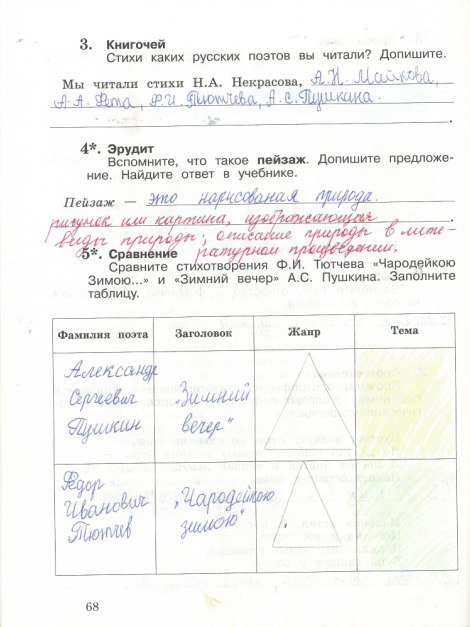 3. Книгочей
Стихи каких русских поэтов вы читали? Допишите.
Мы читали стихи Н.А. Некрасова, А.Н. Майкова,
А.А. Фета, Ф.И. Тютчева, А.С. Пушкина.
4*. Эрудит
Вспомните, что такое пейзаж. Допишите предложе-
ние. Найдите ответ в учебнике.
Пейзаж — это нарисованая природа.
рисунок или картина, изображающая
виды природы; описание природы в лите-
ратурном произведении.
5*. Сравнение
Сравните стихотворения Ф.И. Тютчева «Чародейкою
Зимою...» и «Зимний вечер» А.С. Пушкина. Заполните
таблицу.
Фамилия поэта Заголовок Жанр Тема
Александр
Сергеевич „Зимний
Пушкин вечер“
Фёдор
Иванович „Чародейкою
Тютчев зимою“
68